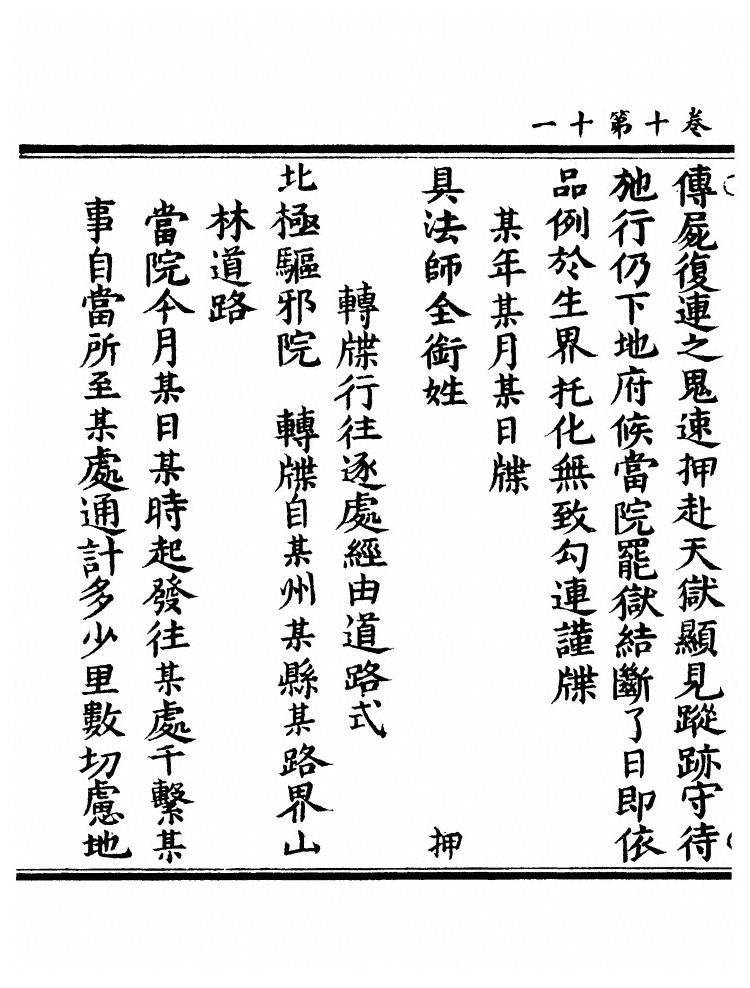 卷十第十一
傳屍復連之鬼速押赴天獄顯見蹤跡守待
施行仍下地府候當院罷獄結斷了日即依
品例於生界托化無致勾連謹牒
某年某月某日牒
具法師全銜姓 押
轉牒行往逐處經由道路式
北極驅邪院 轉牒自某州某縣某路界山
林道路
當院今月某日某時起發往某處干繫某
事自當所至某處通計多少里數切慮地